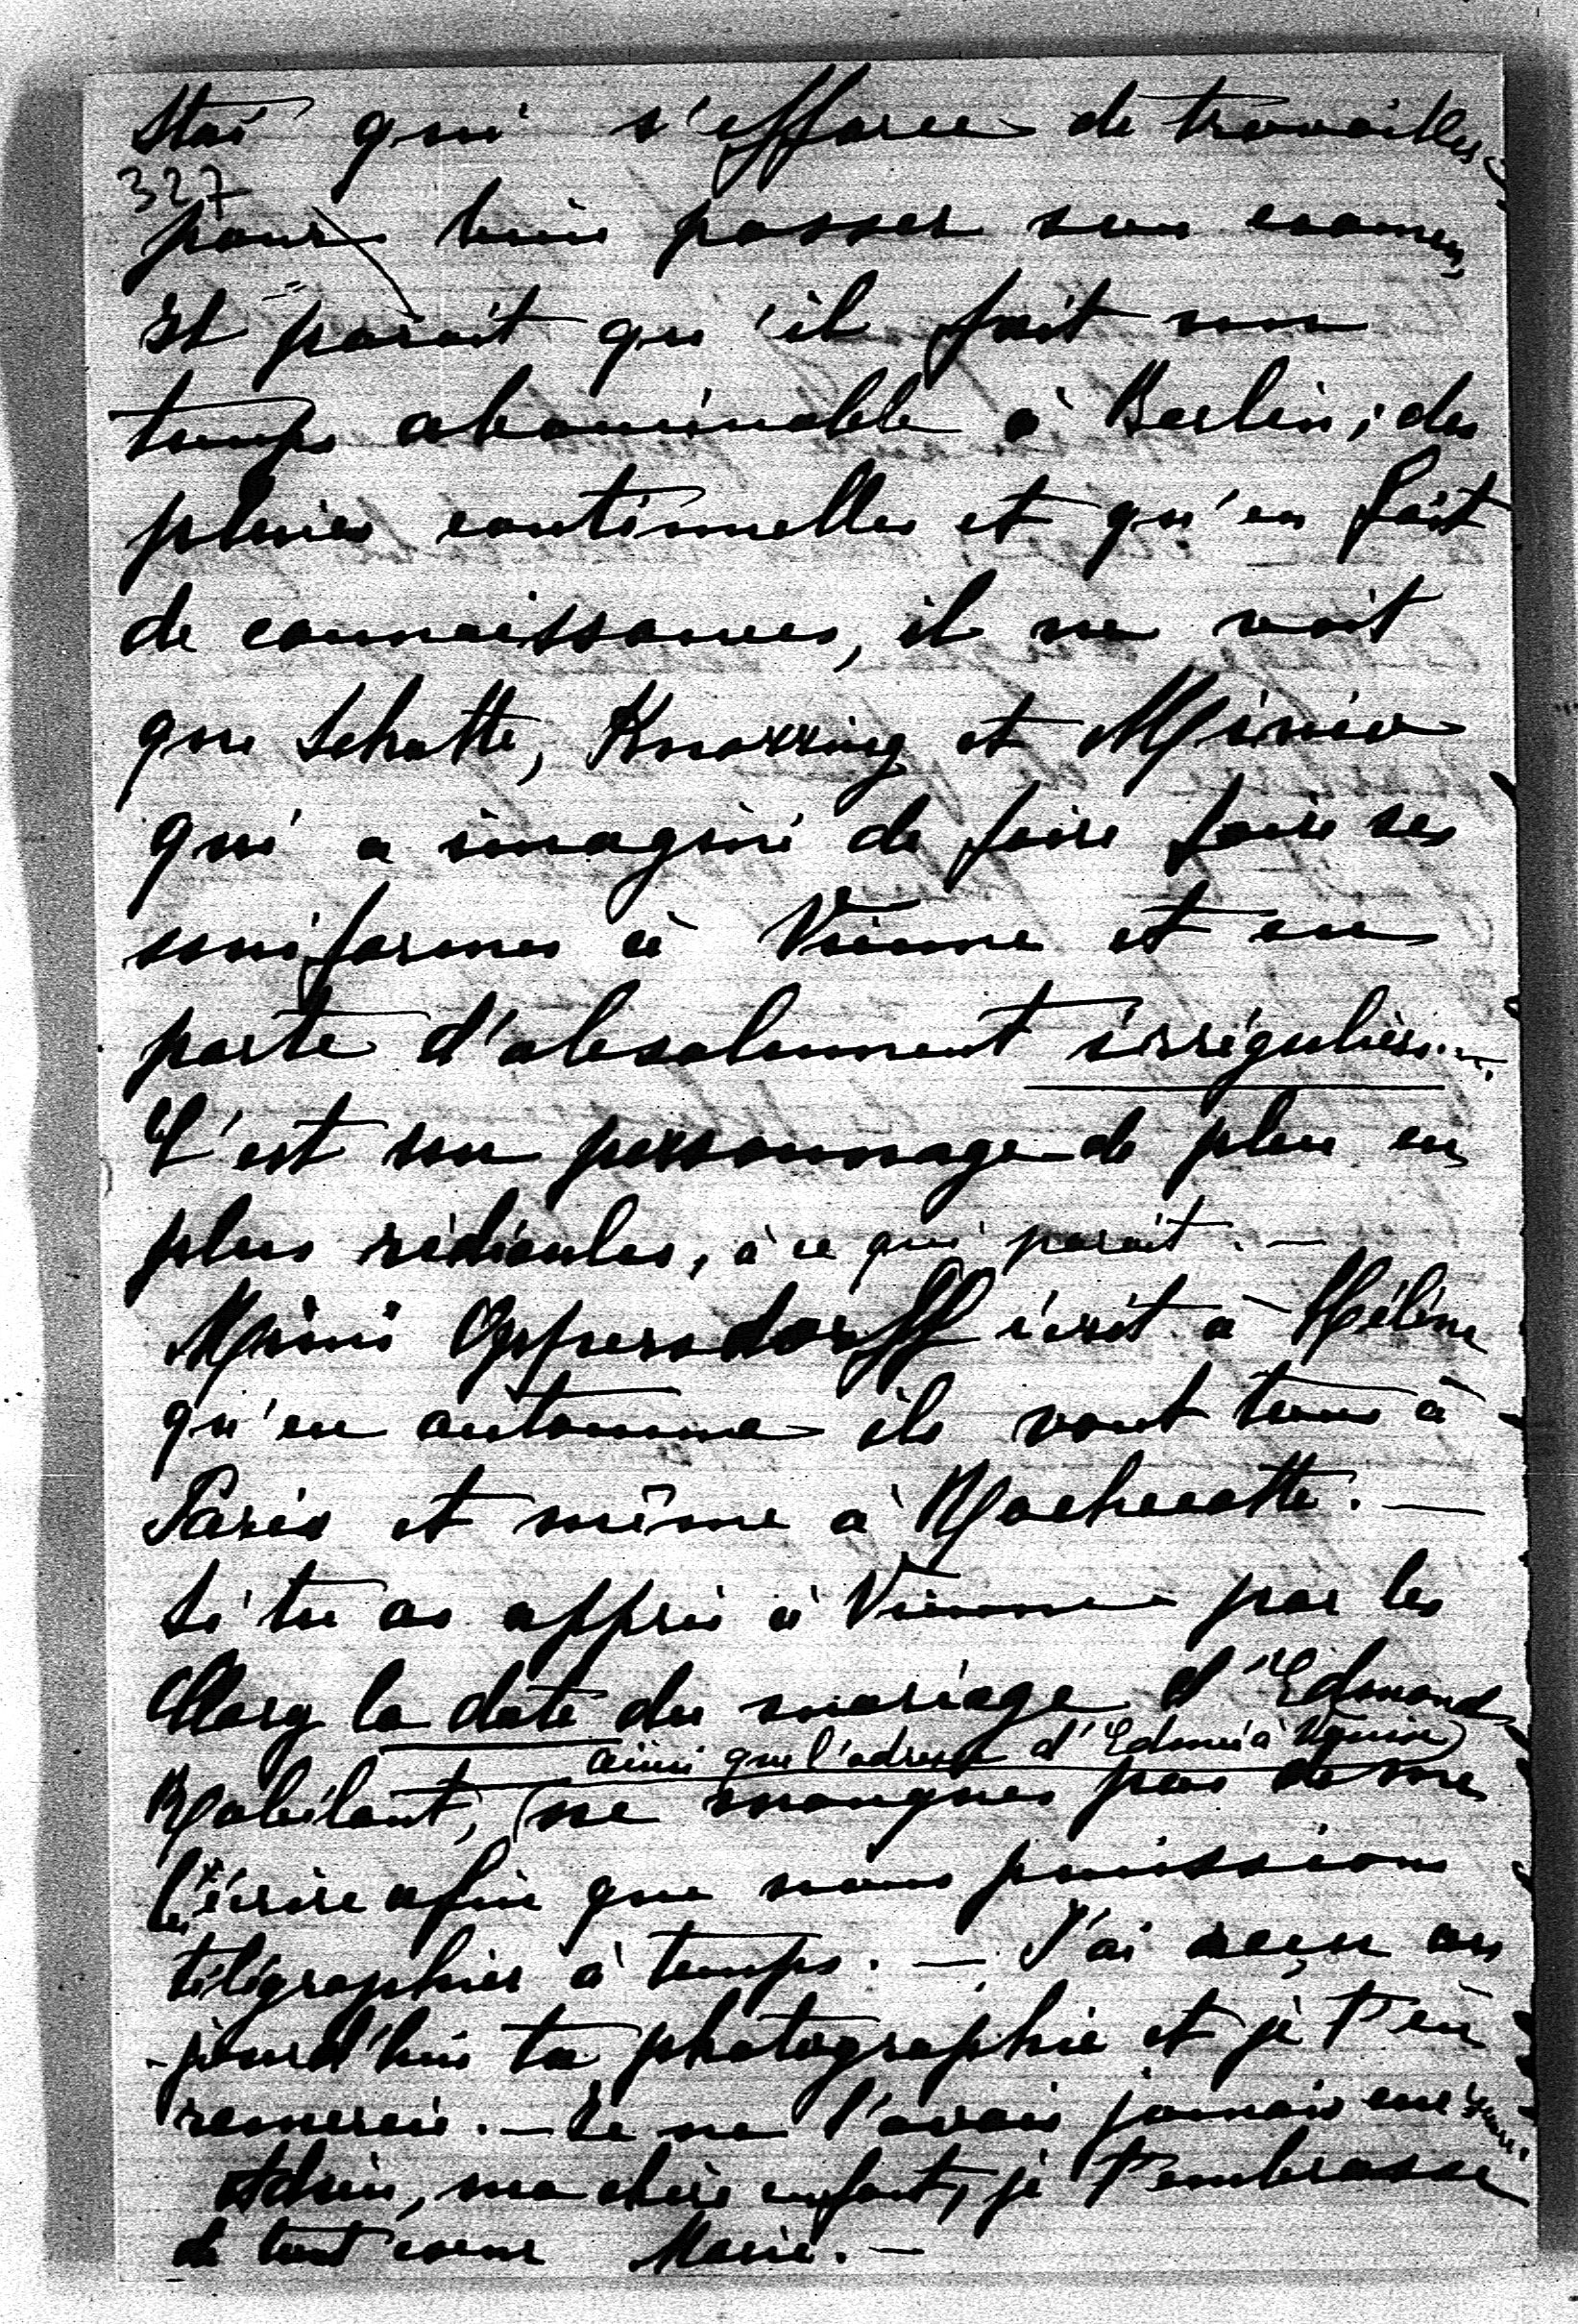 Staś qui s'efforce de travailler
327
pour bien passer son examen,
Il paraît qu'il fait un
temps abominable à Berlin; des
pluies continuelles et qu'en fait
de connaissances, il ne voit
que Schutte, Knorring et Minio
qui a imaginé de faire faire ses
uniformes à Vienne et en
porte d'absolument irréguliers.
C'est un personnage de plus en
plus ridicules, à ce qui paraît. —
Mimi Oppersdorff écrit à Hélène
qu'en automne ils vont tous à
Paris et même à Rochecotte. —
Si tu as appris à Vienne par les
Clary la date du mariage d'Edmond
ainsi que l'adresse d'Edmée à Venise)
Robilant, (ne manques pas de me
l'écrire afin que nous puissions
télégraphier à temps. — J'ai reçu au
-jourd'hui ta photographie et je t'en
remercie. — Je ne l'avais jamais eue
Adieu, ma chère enfant, je t'embrasse
de tout coeur Marie. —